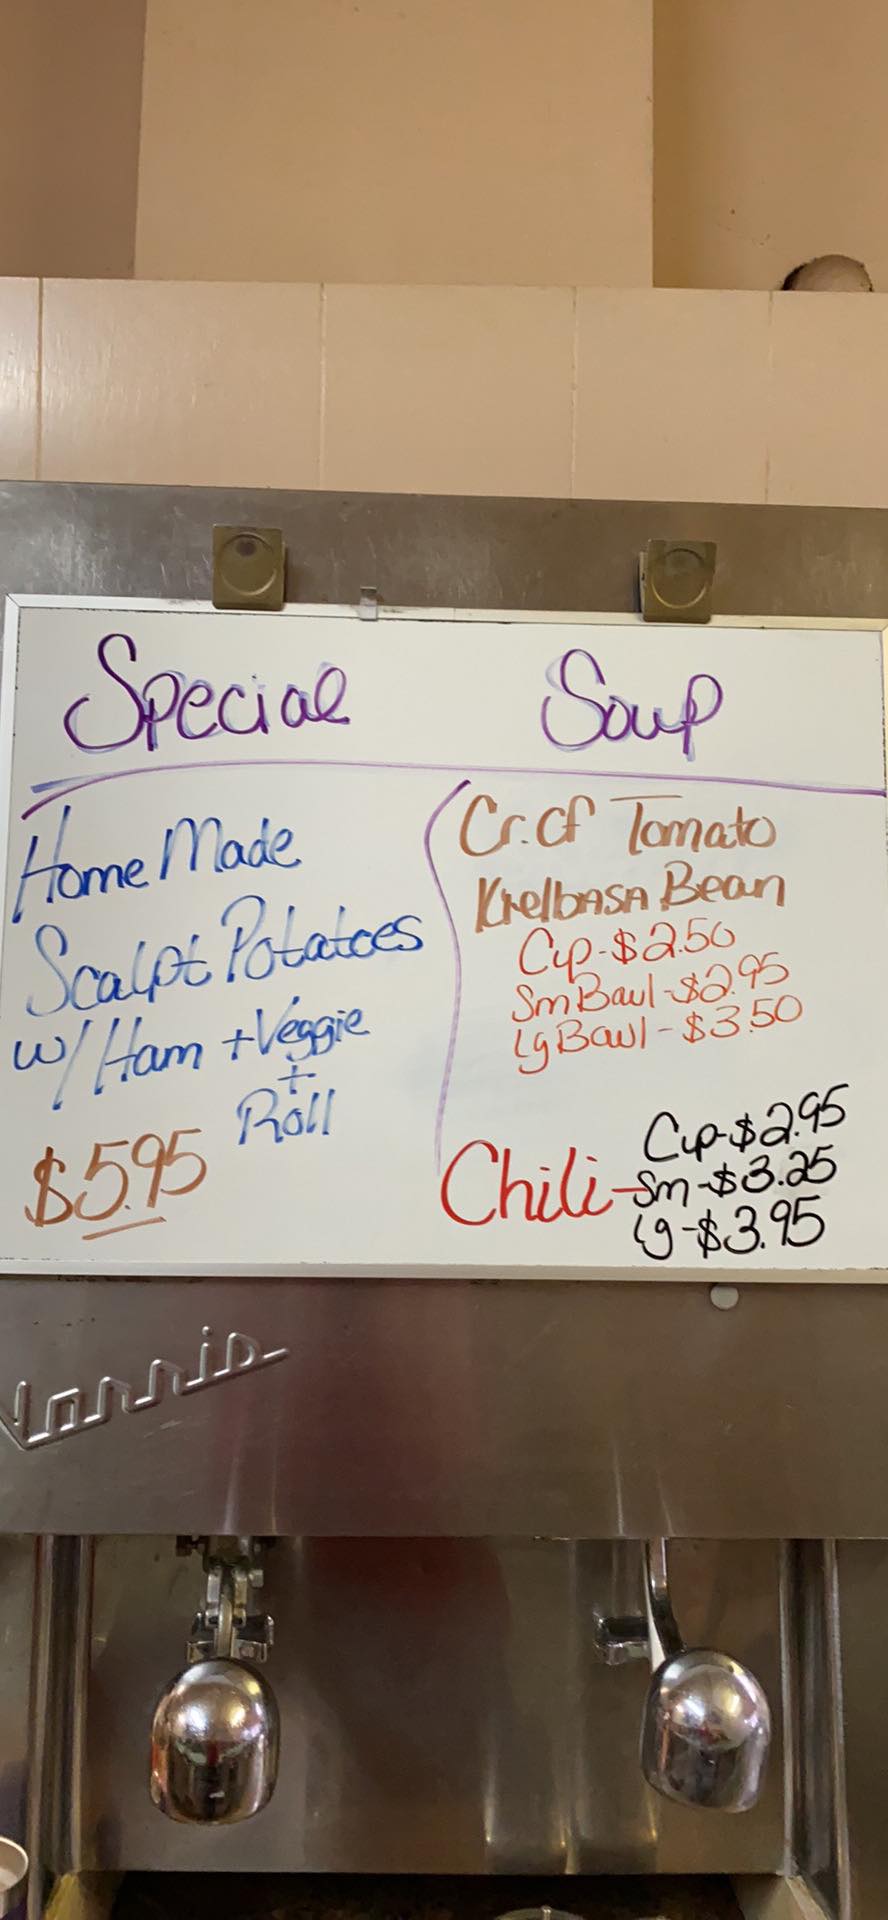 Special
Home Made
Scalpt Potatoes
w/ Ham + Veggie
+
Roll
$5.95
Soup
Cr. of Tomato
Kielbasa Bean
Cup - $2.50
Sm Bawl - $2.95
Lg Bawl - $3.50
Chili - Cup - $2.95
Sm - $3.25
Lg - $3.95
Norris